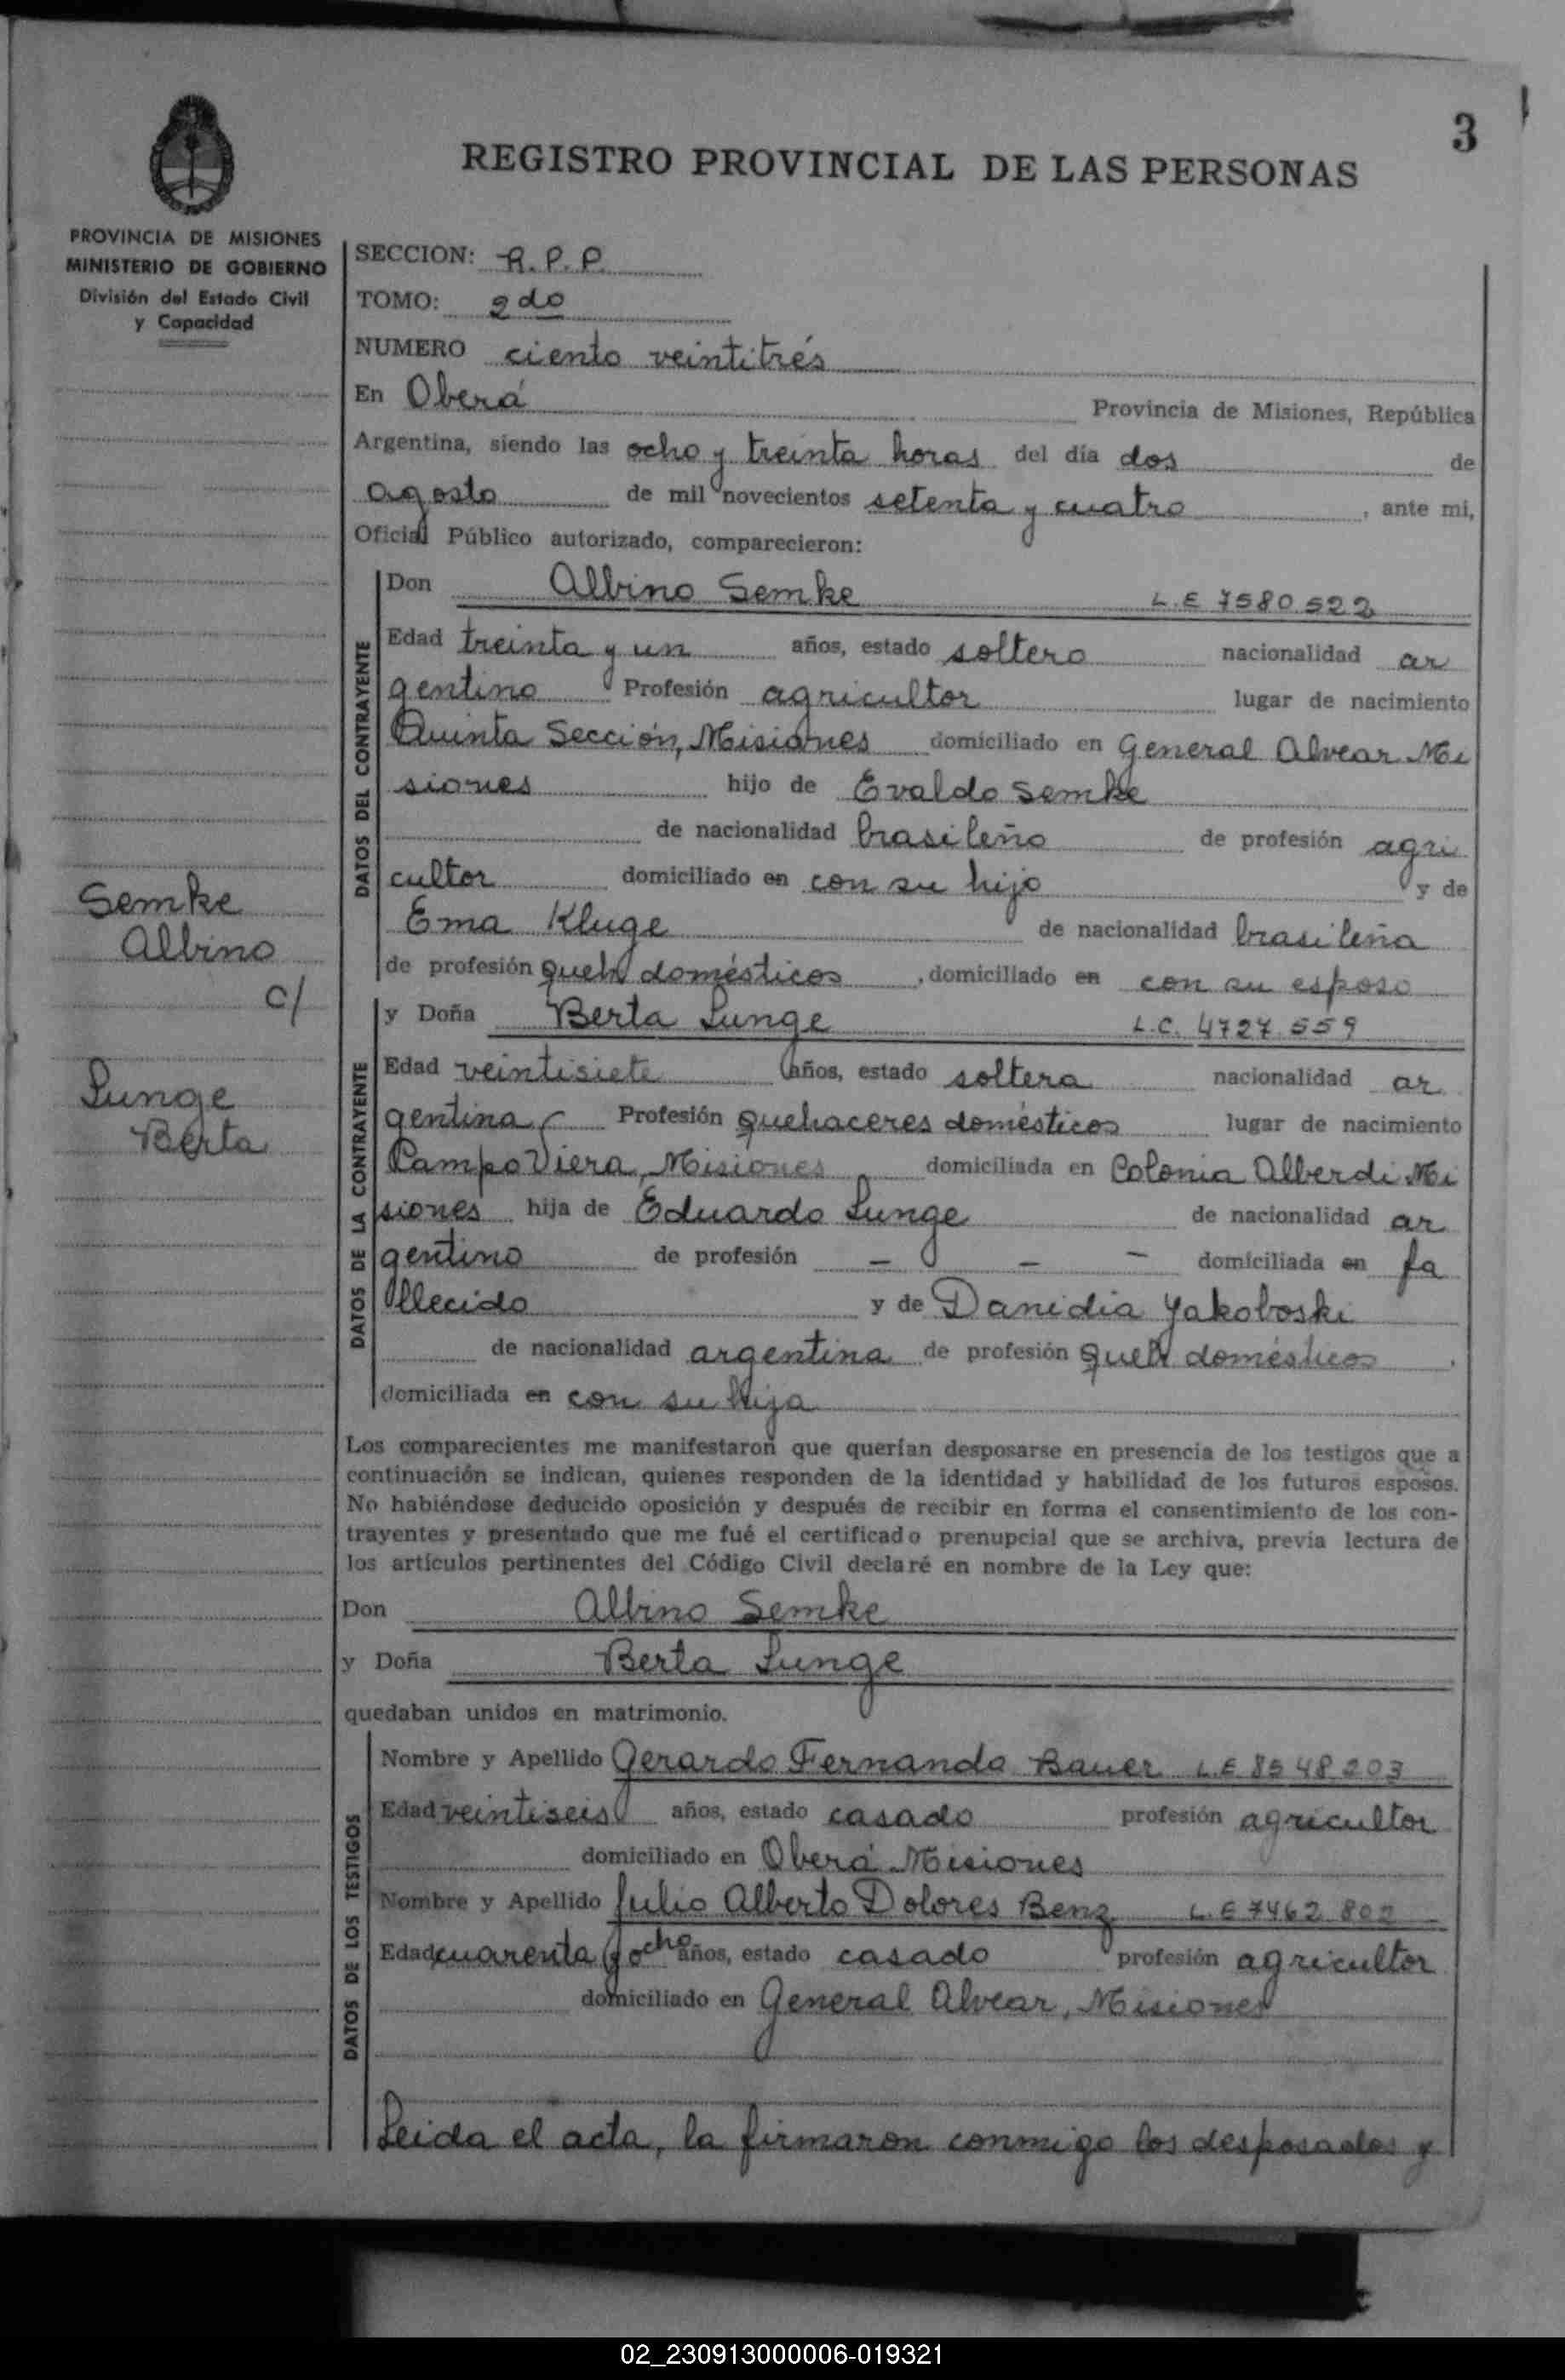 3
REGISTRO PROVINCIAL DE LAS PERSONAS
PROVINCIA DE MISIONES
MINISTERIO DE GOBIERNO
División del Estado Civil
y Capacidad
Semke
Albino
c/
Lunge
Berta
SECCION: R.P.P.
TOMO: 2do
NUMERO ciento veintitrés
En Oberá Provincia de Misiones, República
Argentina, siendo las ocho y treinta horas del día dos de
agosto de mil novecientos setenta y cuatro, ante mi,
Oficial Público autorizado, comparecieron:
DATOS DEL CONTRAYENTE
Don Albino Semke L.E 7580.522
Edad treinta y un años, estado soltero nacionalidad ar
gentino Profesión agricultor lugar de nacimiento
Quinta Sección, Misiones domiciliado en General Alvear Mi
siones hijo de Evaldo Semke
de nacionalidad brasileño de profesión agri
cultor domiciliado en con su hijo y de
Ema Kluge de nacionalidad brasileña
de profesión queh domésticos, domiciliado en con su esposo
DATOS DE LA CONTRAYENTE
y Doña Berta Lunge L.C. 4727.559
Edad veintisiete años, estado soltera nacionalidad ar
gentina Profesión quehaceres domésticos lugar de nacimiento
Campo Viera, Misiones domiciliada en Colonia Alberdi Mi
siones hija de Eduardo Lunge de nacionalidad ar
gentino de profesión - - - domiciliada en fa
llecido y de Danidia Yakoboski
de nacionalidad argentina de profesión queh domésticos,
domiciliada en con su hija
Los comparecientes me manifestaron que querían desposarse en presencia de los testigos que a
continuación se indican, quienes responden de la identidad y habilidad de los futuros esposos.
No habiéndose deducido oposición y después de recibir en forma el consentimiento de los con-
trayentes y presentado que me fué el certificado prenupcial que se archiva, previa lectura de
los artículos pertinentes del Código Civil declaré en nombre de la Ley que:
Don Albino Semke
y Doña Berta Lunge
quedaban unidos en matrimonio.
DATOS DE LOS TESTIGOS
Nombre y Apellido Gerardo Fernando Bauer L.E 8548203
Edad veintiseis años, estado casado profesión agricultor
domiciliado en Oberá Misiones
Nombre y Apellido Julio Alberto Dolores Benz L.E 7462.802
Edad cuarenta y ocho años, estado casado profesión agricultor
domiciliado en General Alvear, Misiones
Leida el acta, la firmaron conmigo los desposados y
02_230913000006-019321